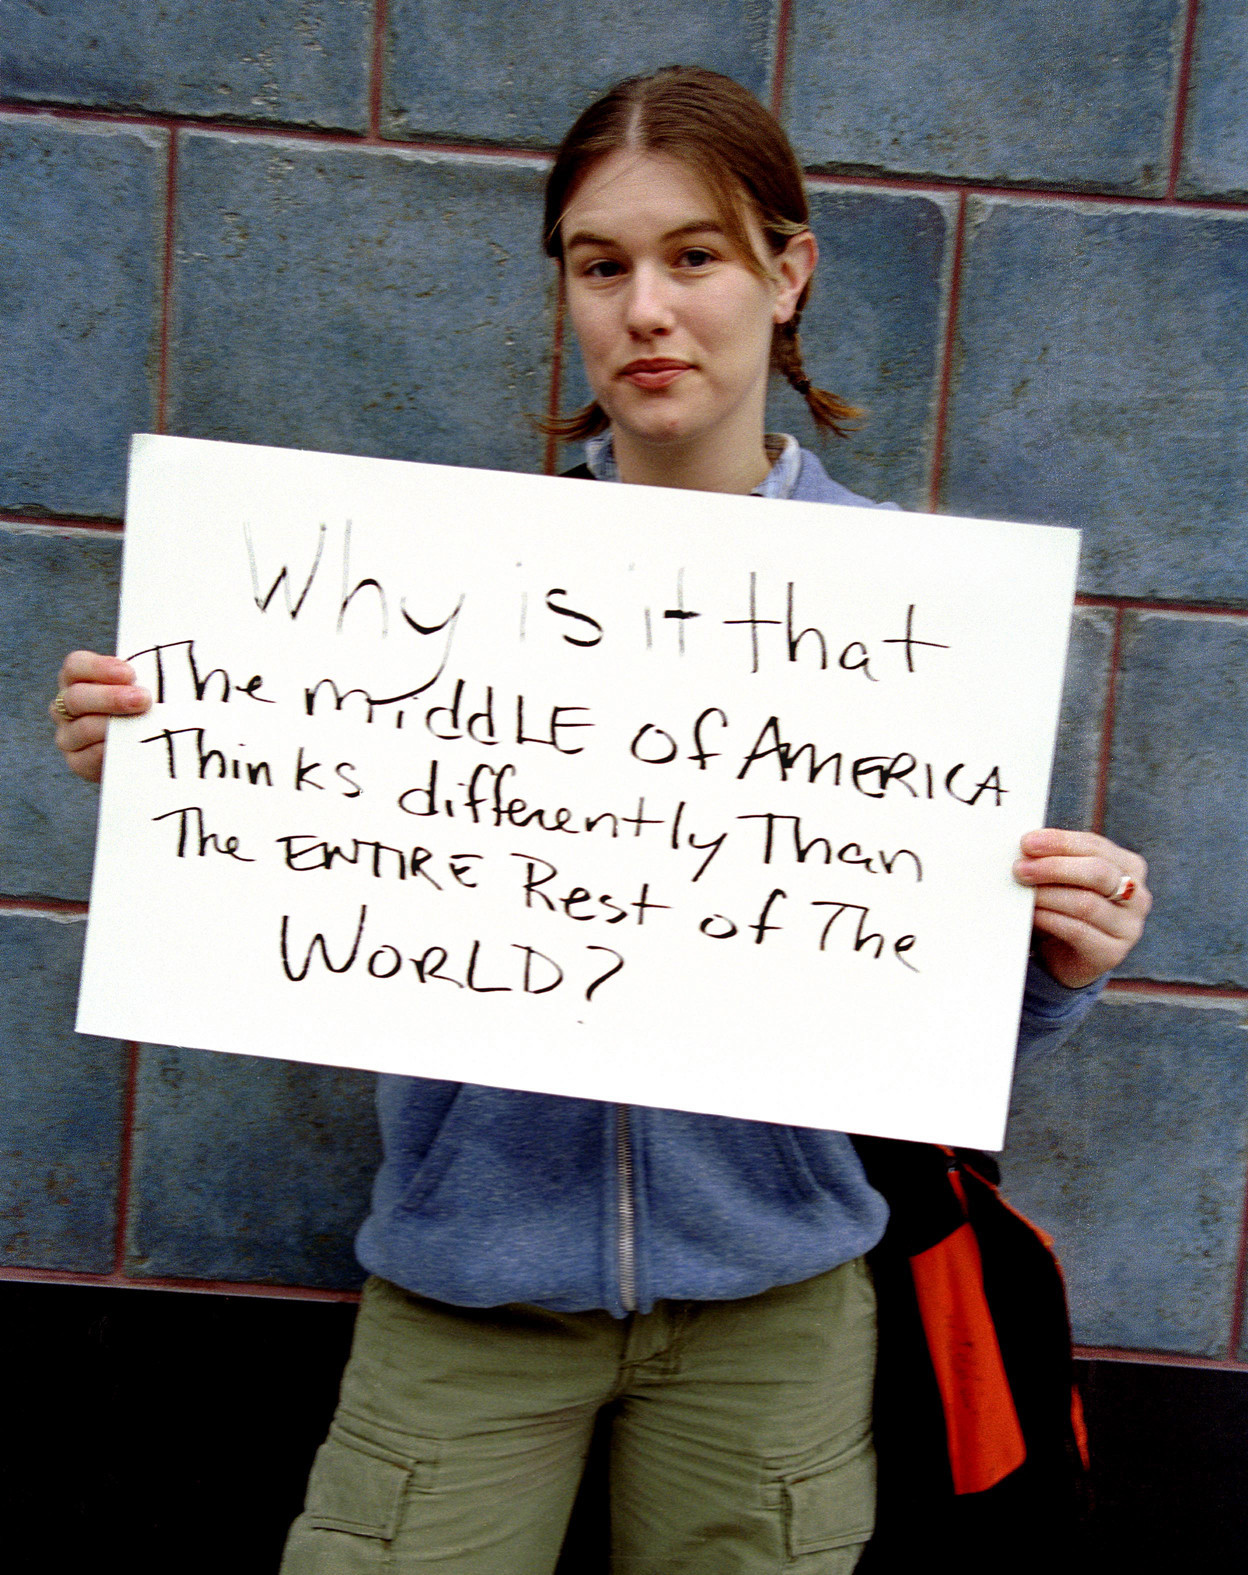 Why is it that
The middLE of AMERICA
Thinks differently Than
The ENTIRE Rest of The
WORLD?